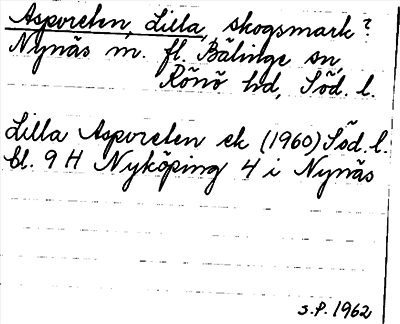 Aspvreten, Lilla, skogsmark?
Nynäs m. fl. Bälinge sn,
Rönö hd, Söd. l.
Lilla Aspvreten ek (1960) Söd. l.
bl. 9 H Nyköping 4 i Nynäs
S.P. 1962